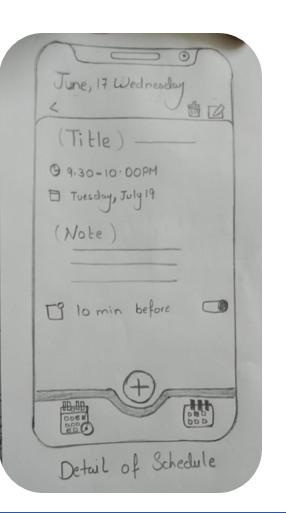 June, 17 Wednesday
<
(Title)
9.30-10.00PM
Tuesday, July 19
(Note)
10 min before
+
Detail of Schedule